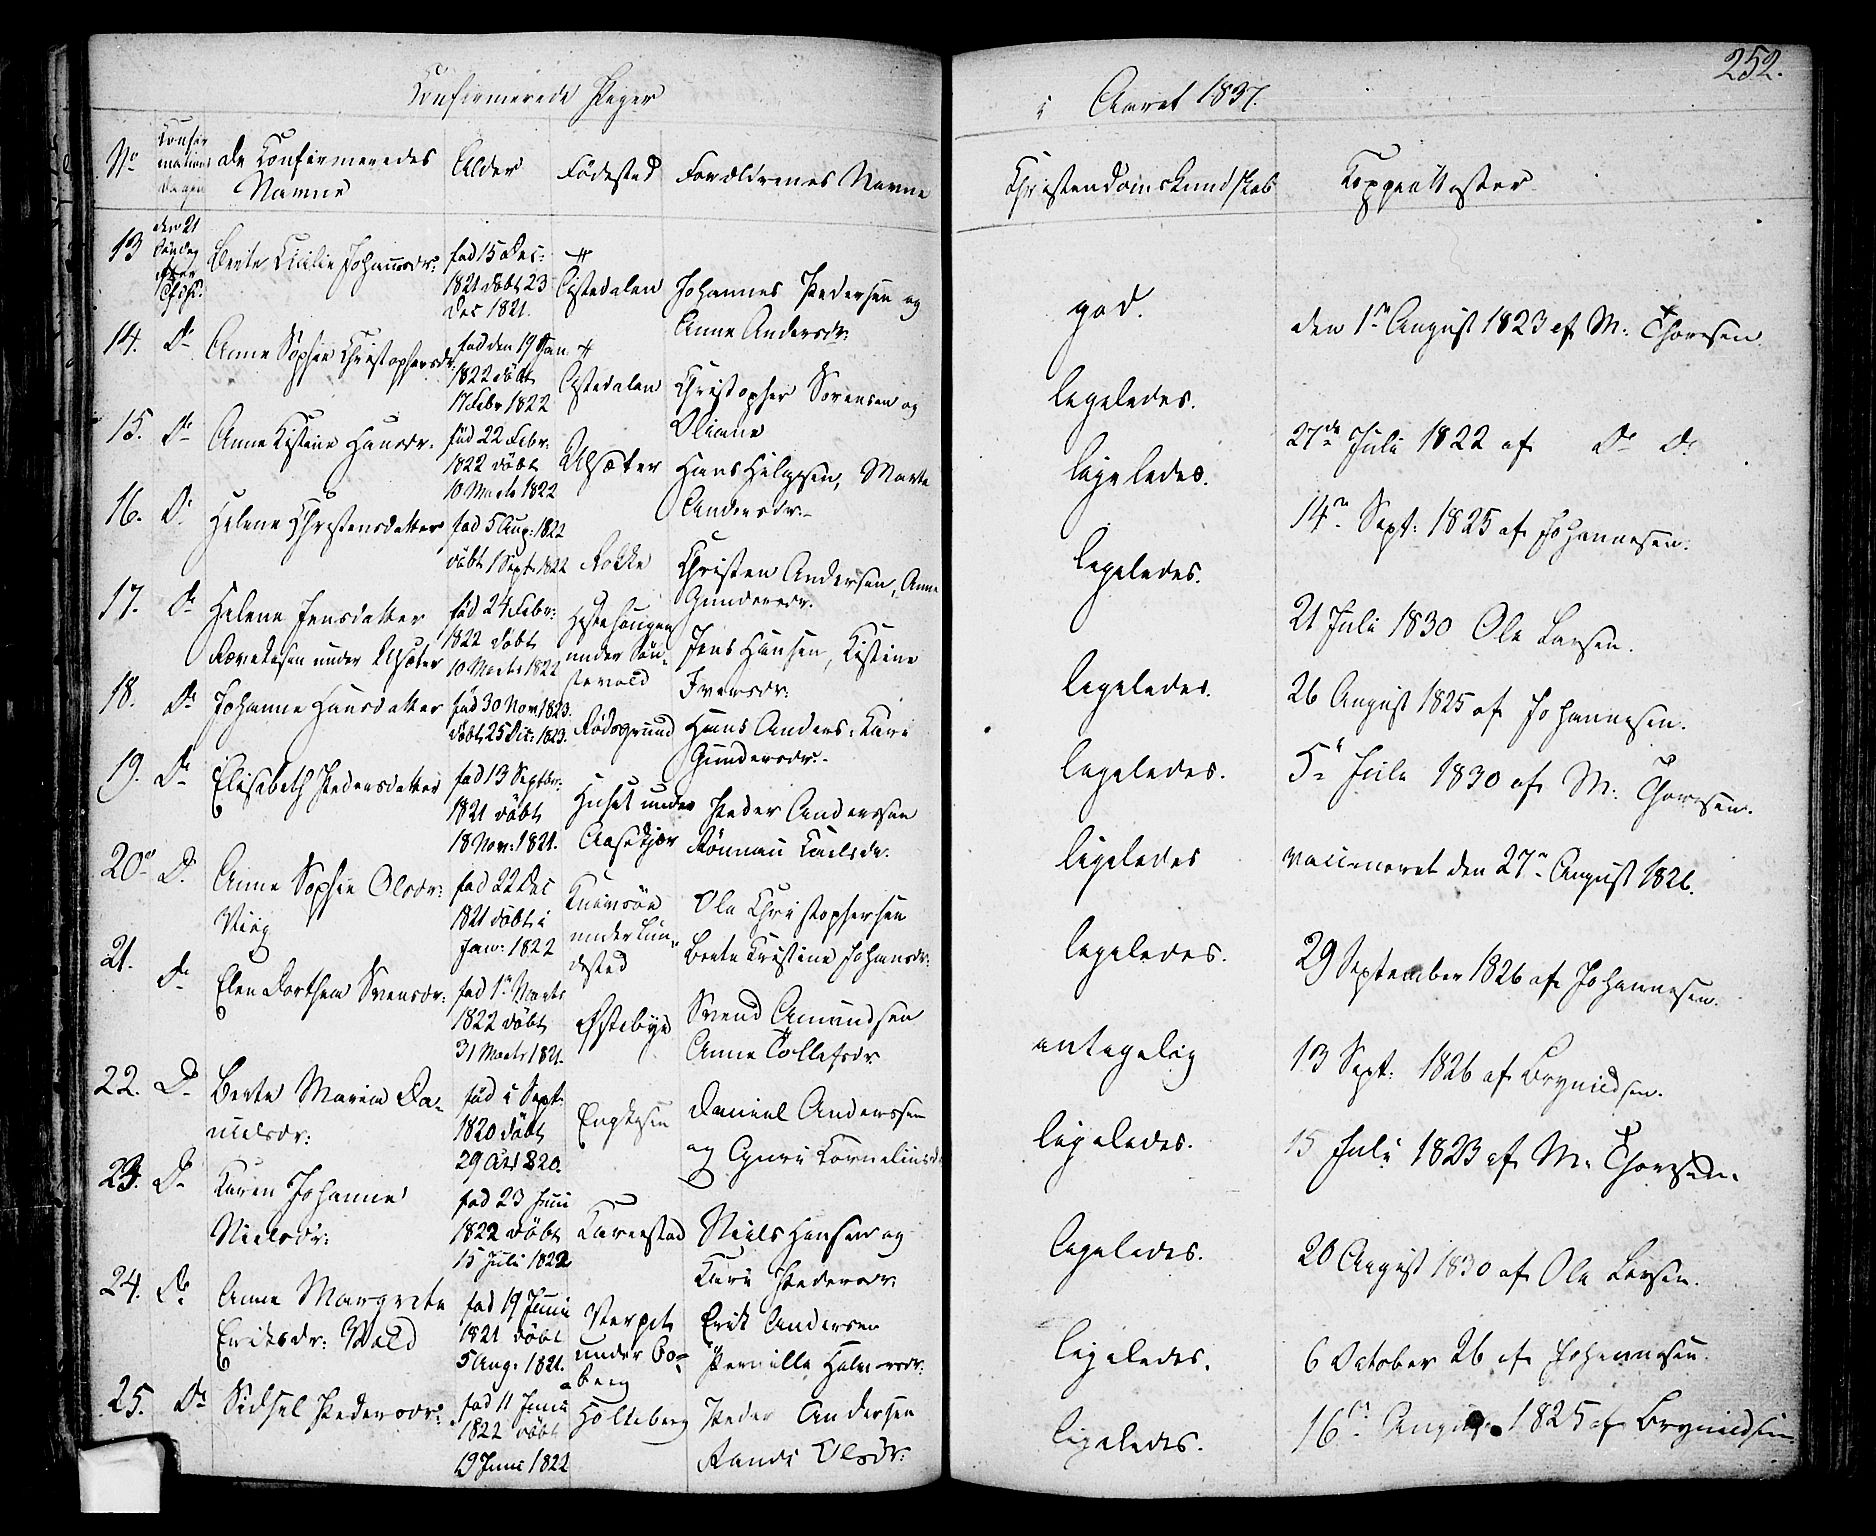 252.
Confirmerede Piger
i Aaret 1837.
No
Confirmations Dagen
de Confirmeredes Navne
Alder
Födested
Forældrenes Navne
Christendomskundskab
Koppeattester
13
den 21 Söndag efter
Berte Cicilie Johannsdr:
fød 15 Dec: 1821 döbt 23 Dec 1821.
Tistedalen
Johannes Pedersen og Anne Andersdr:
god.
den 1ste August 1823 af M: Thoresen
14. Do
Anne Sophie Christophersdr:
fød den 19 Jan 1822 döbt 17 Febr 1822
Tistedalen
Christopher Sörensen og Oliane
ligeledes.
27de Juli 1822 af Do Do
15. Do
Anne Kistine Hansdr:
fød 22 Febr: 1822 döbt 10 Marts 1822
Ulsæter
Hans Helgesen, Marte Andersdr:
ligeledes.
14de Sept: 1825 af Johannesen.
16. Do
Helene Christensdatter
fød 5 Aug: 1822 döbt 1 Sept: 1822
Rokke
Christen Andersen, Anne Gundersdr.
ligeledes.
21 Juli 1830 Ole Larsen.
17. Do
Helene Jensdatter
under Ulsæter
fød 24 Febr: 1822 döbt 10 Marts 1822
Hestehaugen under
Jens Hansen, Kistine Iversdr:
ligeledes.
26 August 1825 af Johannesen.
18. Do
Johanne Hansdatter
fød 30 Nov 1823. döbt 25 Dec: 1823.
Rödsgrund
Hans Anders: Kari Gundersdr:
ligeledes.
5te Juli 1830 af M: Thoresen.
19. Do
Elisabeth Pedersdatter
fød 13 Septbr: 1821 döbt 18 Nov: 1821.
Huset under Aasekjær
Peder Anderssen Rönnau Carlsdr.
ligeledes
vaccineret den 27de August 1821.
20 Do
Anne Sophie Olsdr:
fød 22 Dec 1821 döbt i Jan: 1822
under
Ole Christophersen Berte Kristine Johansdr:
ligeledes.
29 September 1826 af Johannesen.
21. Do
Elen Dorthea Svensdr:
fød 1ste Marts 1822 döbt 31 Marts 1821.
Østebye
Svend Amundsen Anne Tollefsdr
antagelig
13 Sept: 1826 af Brynildsen.
22. Do
Berte Maria Danielsdr:
fød i Sept: 1820 döbt 29 Oct 1820.
Daniel Anderssen og Guri Corneliusd
ligeledes.
15 Juli 1823 af M: Thoresen.
23. Do
Karen Johanne Nielsdr:
fød 23 Juni 1822 döbt 15 Juli 1822
Niels Hansen og Kari Pedersdr:
ligeledes.
20 August 1830 af Ole Larsen.
24. Do
Anne Margrete Eriksdr: Wold
fød 19 Juni 1821 döbt 5 Aug: 1821.
under
Erik Andersen Pernille Halvorsdr:
ligeledes.
6 October 26 af Johannesen.
25. Do
Sidsel Pedersdr:
fød 11 Juni 1822 döbt 19 Juni 1822
Holteberg
Peder Andersen Randi Olsdr:
ligeledes.
16de August 1825 af Brynildsen